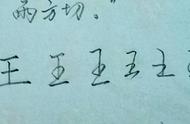 两方切。”
王王王王主